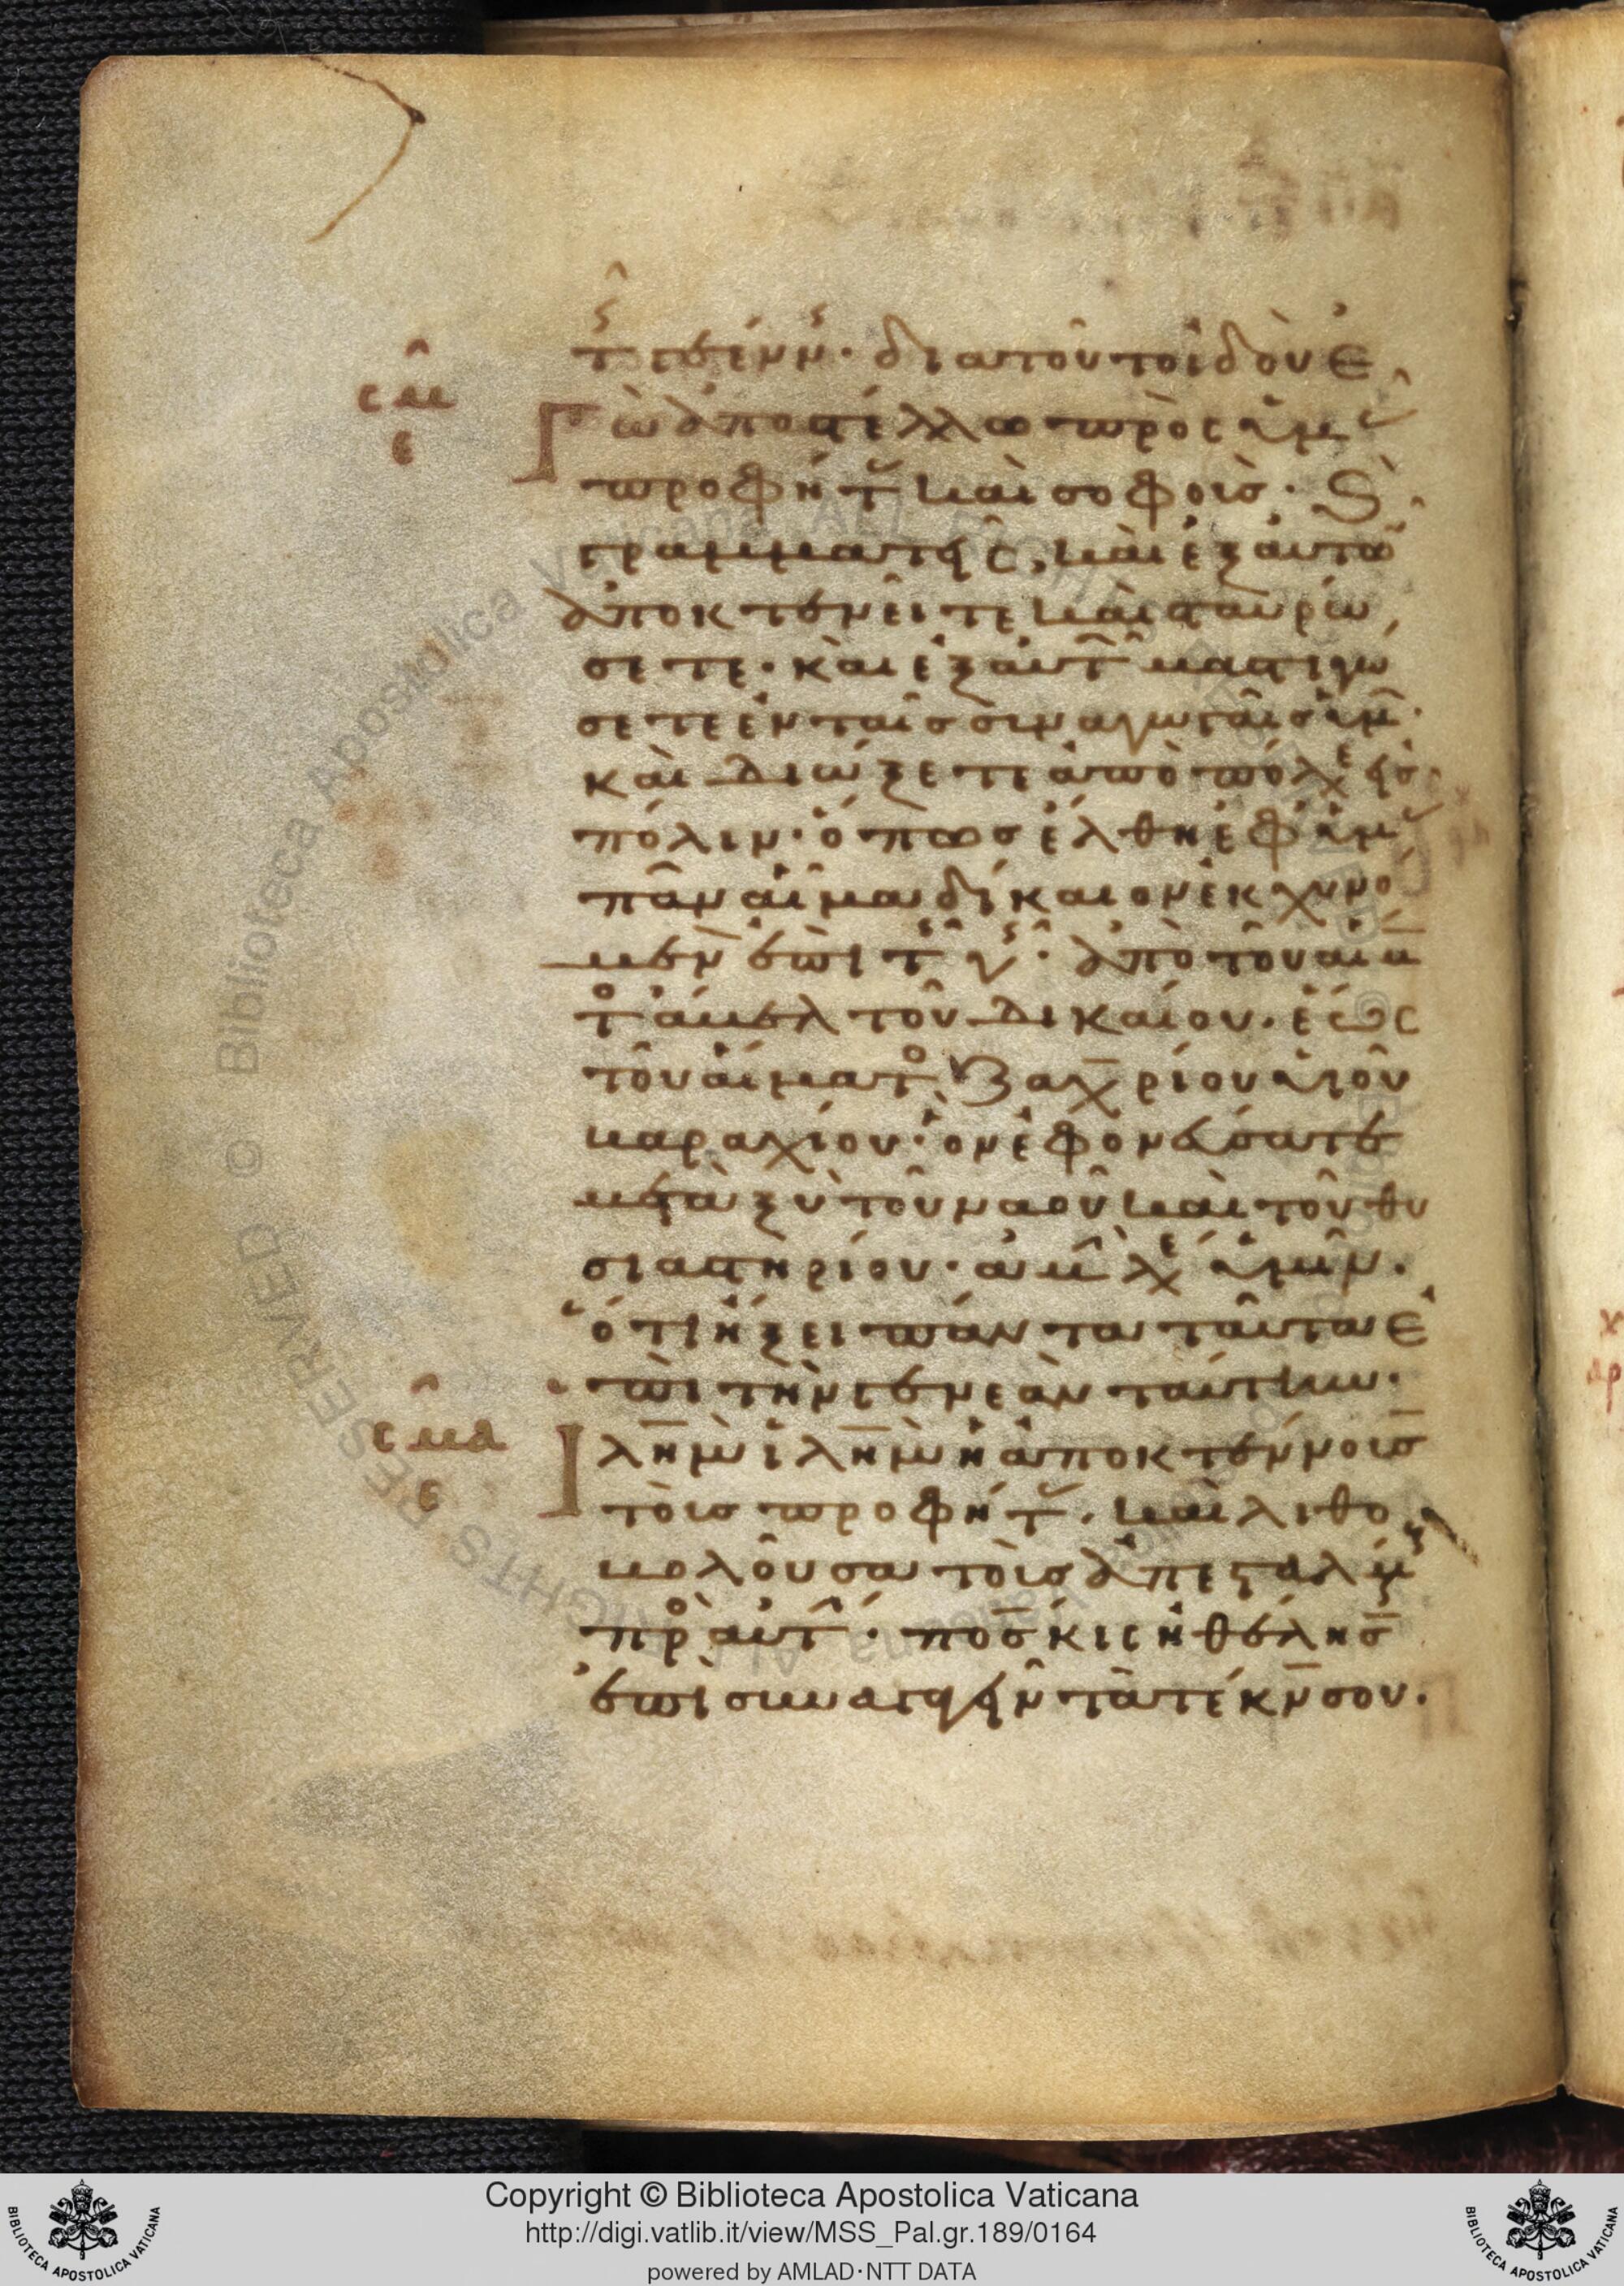 τ γεέννης· διατοῦτο ἰδοὺ ἐ
γὼ ἀποστέλλω πρὸς ὑμᾶς
προφήτας καὶ σοφοὺς· καὶ
γραμματῆς, καὶ ἐξ αὐτῶ
ἀποκτενεῖτε καὶ σταυρώ
σετε· καὶ ἐξ αὐτῶν μαστιγώ
σετε ἐν ταῖς συναγωγαῖς ὑμῶν·
καὶ διώξετε ἀπὸ πόλεως εἰς
πόλιν· ὅπως ἔλθη ἐφ ὑμᾶς
πᾶν αἷμα δίκαιον ἐκχυνό
μενὸν ἐπὶ τῆς γῆς· ἀπὸ τοῦ αἵμα
τος ἄβελ τοῦ δικαίου· ἕως
τοῦ αἵματος Ζαχαρίου υἱοῦ
βαραχίου· ὃν ἐφονεύσατε
μεταξὺ τοῦ ναοῦ καὶ τοῦ θυ
σιαστηρίου· ἀμὴν λέγω ὑμῖν·
ὅτι ἥξει πάντα ταῦτα ἐ
πὶ τὴν γενεὰν ταύτην·
Ιλημ ιλημ ἡ ἀποκτέννουσα
τοὺς προφήτας· καὶ λιθο
βολοῦσα τοὺς ἀπεσταλμένους
πρὸς αὐτήν· ποσάκις ἠθέλησα
ἐπισυναγαγεῖν τὰ τέκνα σου·
Copyright © Biblioteca Apostolica Vaticana
http://digi.vatlib.it/view/MSS_Pal.gr.189/0164
powered by AMLAD·NTT DATA